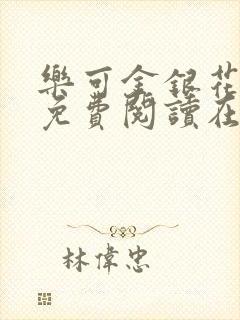 樂可金銀花
免費閱讀在
林偉忠